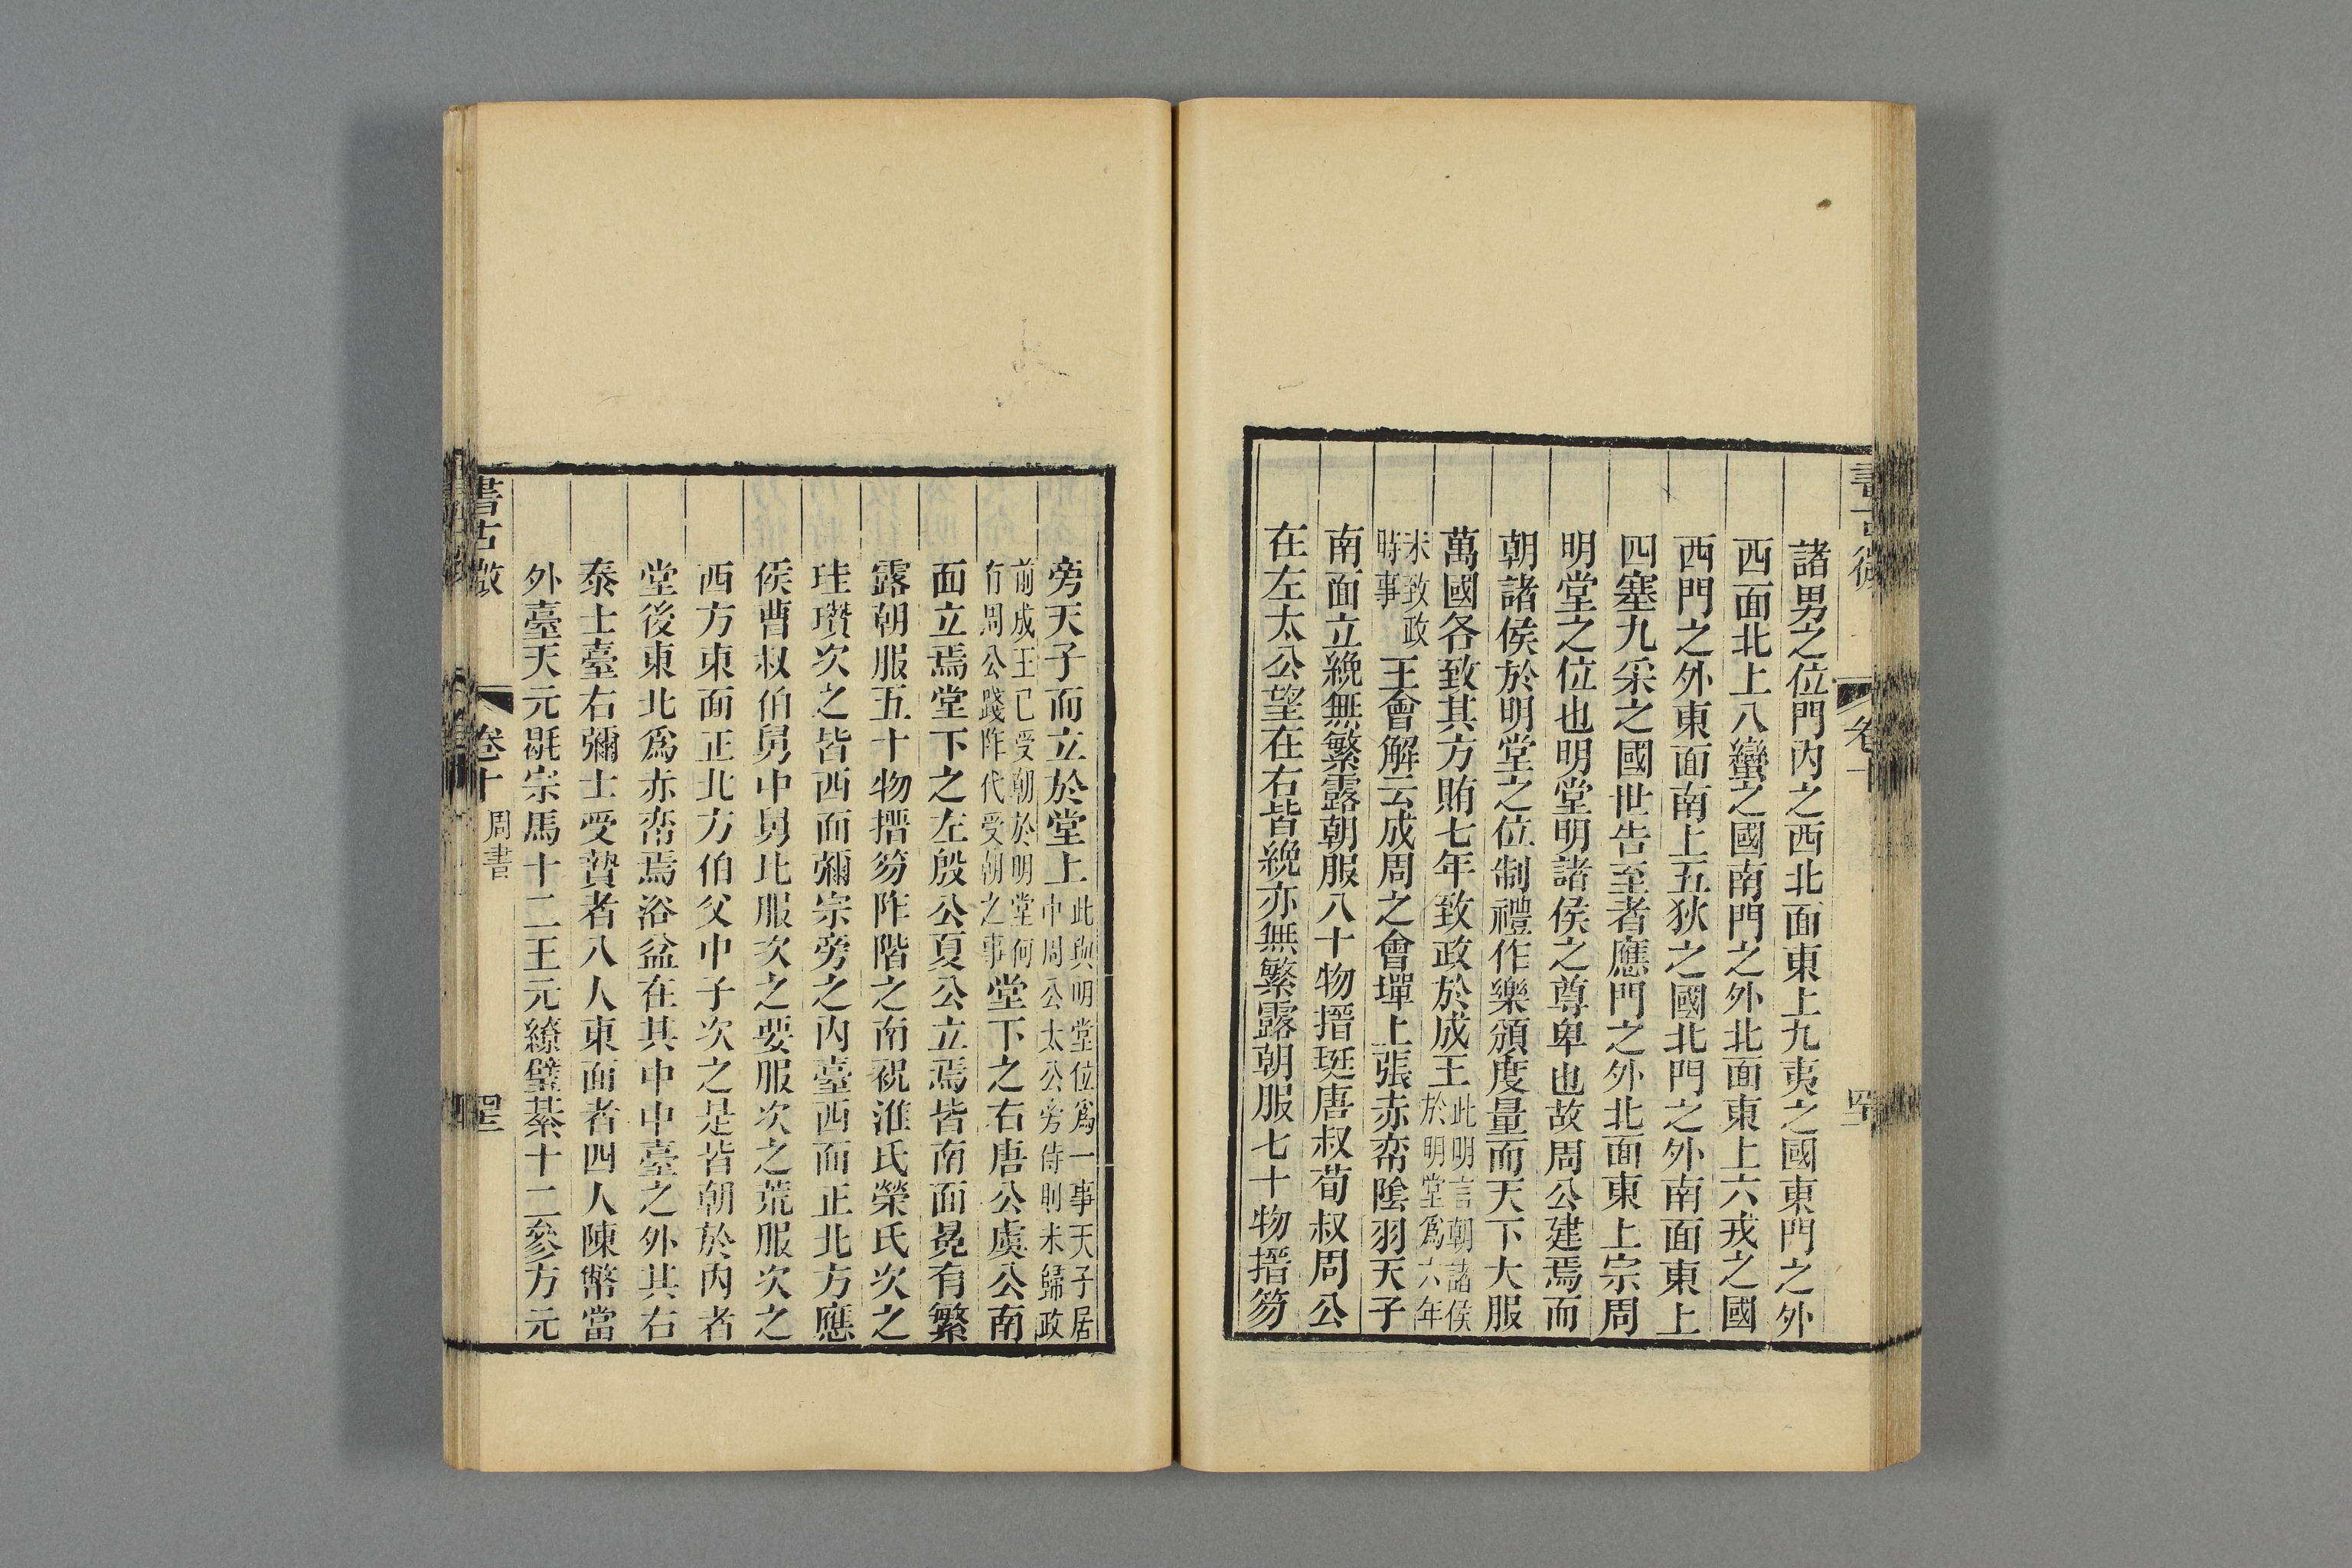 諸男之位門内之西北面東上九夷之國東門之外
西面北上八蠻之國南門之外北面東上六戎之國
西門之外東面南上五狄之國北門之外南面東上
四塞九采之國世告至者應門之外北面東上宗周
明堂之位也明堂明諸侯之尊卑也故周公建焉而
朝諸侯於明堂之位制禮作樂頒度量而天下大服
萬國各致其方賄七年致政於成王此明言朝諸侯於明堂爲六年
未致政時事王會解云成周之會墠上張赤帟陰羽天子
南面立絻無繁露朝服八十物搢珽唐叔荀叔周公
在左太公望在右皆絻亦無繁露朝服七十物搢笏
旁天子而立於堂上此與明堂位爲一事天子居中周公太公旁侍則未歸政
前成王已受朝於明堂何有周公踐阼代受朝之事堂下之右唐公虞公南
面立焉堂下之左殷公夏公立焉皆南面冕有繁
露朝服五十物搢笏阼階之南祝淮氏榮氏次之
珪瓚次之皆西面彌宗旁之内臺西面正北方應
侯曹叔伯舅中舅比服次之要服次之荒服次之
西方東面正北方伯父中子次之是皆朝於内者
堂後東北爲赤帟焉浴盆在其中中臺之外其右
泰士臺右彌士受贄者八人東面者四人陳幣當
外臺天元毼宗馬十二王元繚璧綦十二參方元
書古微
卷十
周書